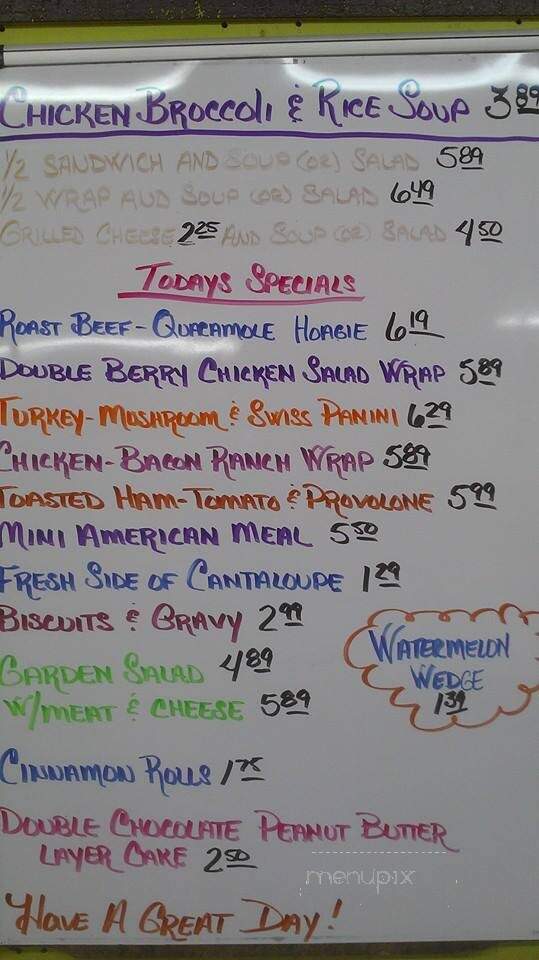 CHICKEN BROCCOLI & RICE SOUP 3.89
1/2 SANDWICH AND SOUP (OR) SALAD 5.89
1/2 WRAP AND SOUP (OR) SALAD 6.49
GRILLED CHEESE 2.25 AND SOUP (OR) SALAD 4.50
TODAYS SPECIALS
ROAST BEEF-QUACAMOLE HOAGIE 6.19
DOUBLE BERRY CHICKEN SALAD WRAP 5.89
TURKEY-MUSHROOM & SWISS PANINI 6.29
CHICKEN-BACON RANCH WRAP 5.89
TOASTED HAM-TOMATO & PROVOLONE 5.99
MINI AMERICAN MEAL 5.50
FRESH SIDE OF CANTALOUPE 1.29
BISCUITS & GRAVY 2.99
WATERMELON
WEDGE
1.39
GARDEN SALAD 4.89
W/MEAT & CHEESE 5.89
CINNAMON ROLLS 1.75
DOUBLE CHOCOLATE PEANUT BUTTER
LAYER CAKE 2.50
menupix
HAVE A GREAT DAY!